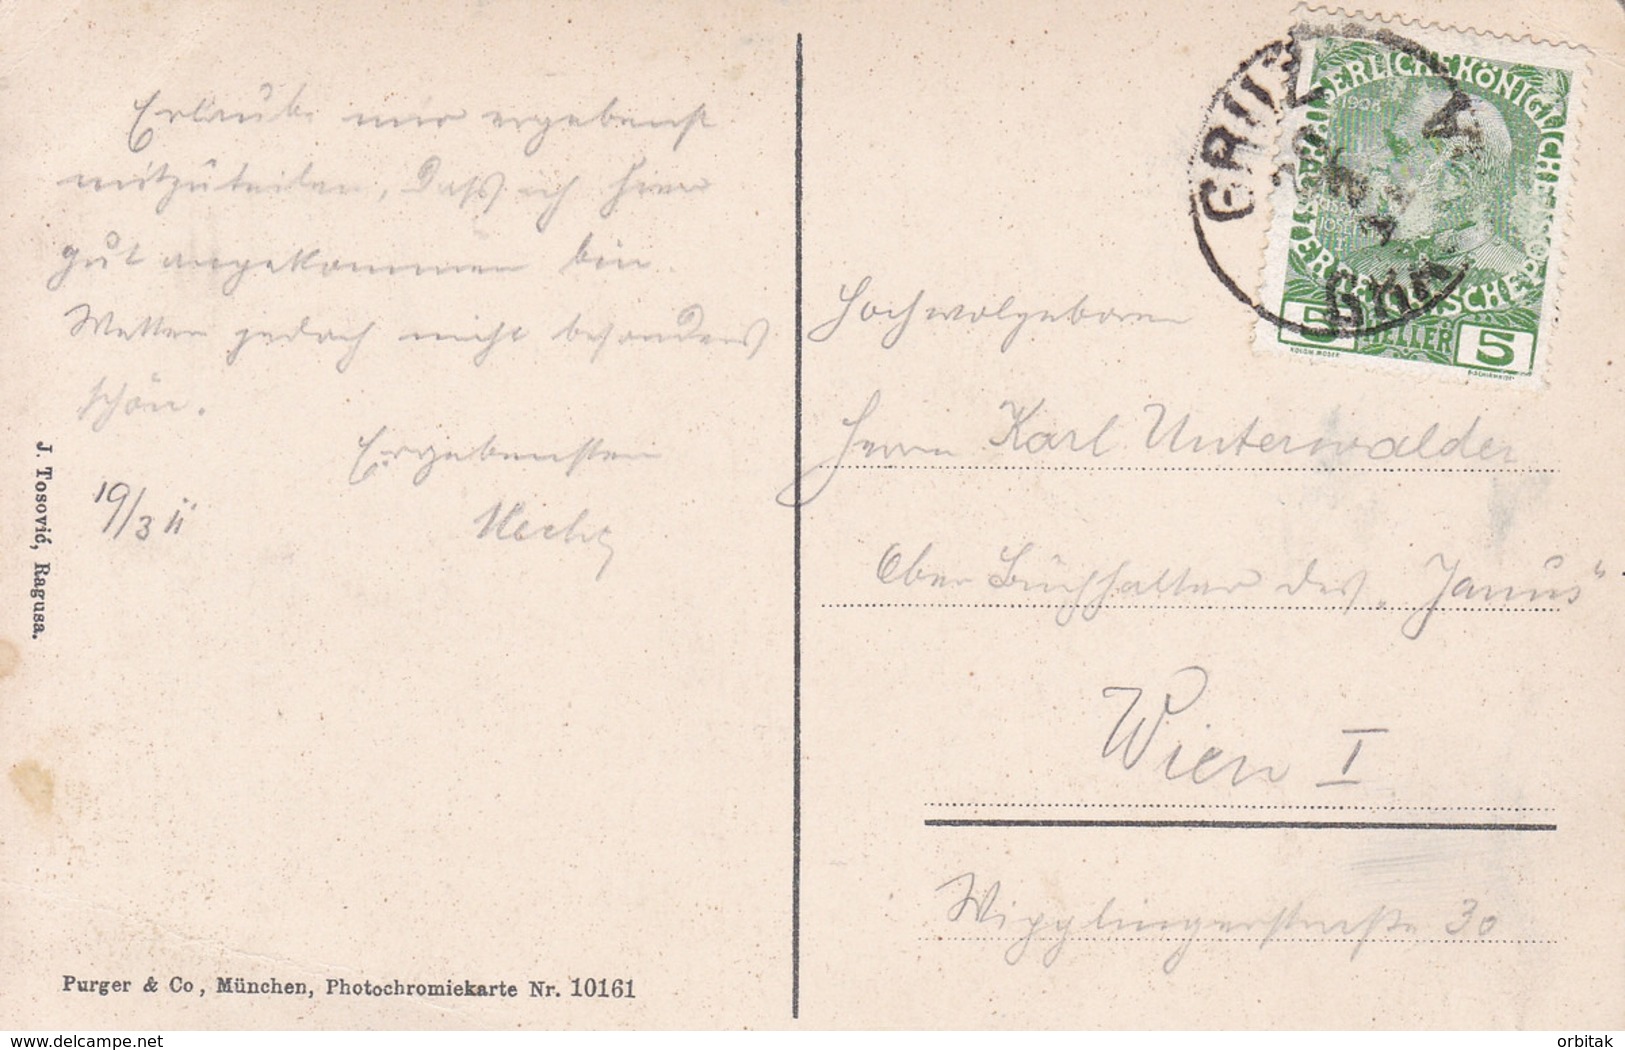 Erlaube mir ergebenst
mitzuteilen, dass ich hier
gut angekommen bin.
Wetter jedoch nicht besonders
schön.
Ergebensten
19/3 11
J. Tosović, Ragusa.
Purger & Co, München, Photochromiekarte Nr. 10161
KAISERLICHE KÖNIGLICHE ÖSTERREICHISCHE POST
1908
5 HELLER 5
KOLOM. MOSER
GRUŽ
Hochwolgeboren
Herrn Karl Unterwalder
Ober Buchhalter des „Janus"
Wien I
Wipplingerstraße 30
delcampe.net
orbitak